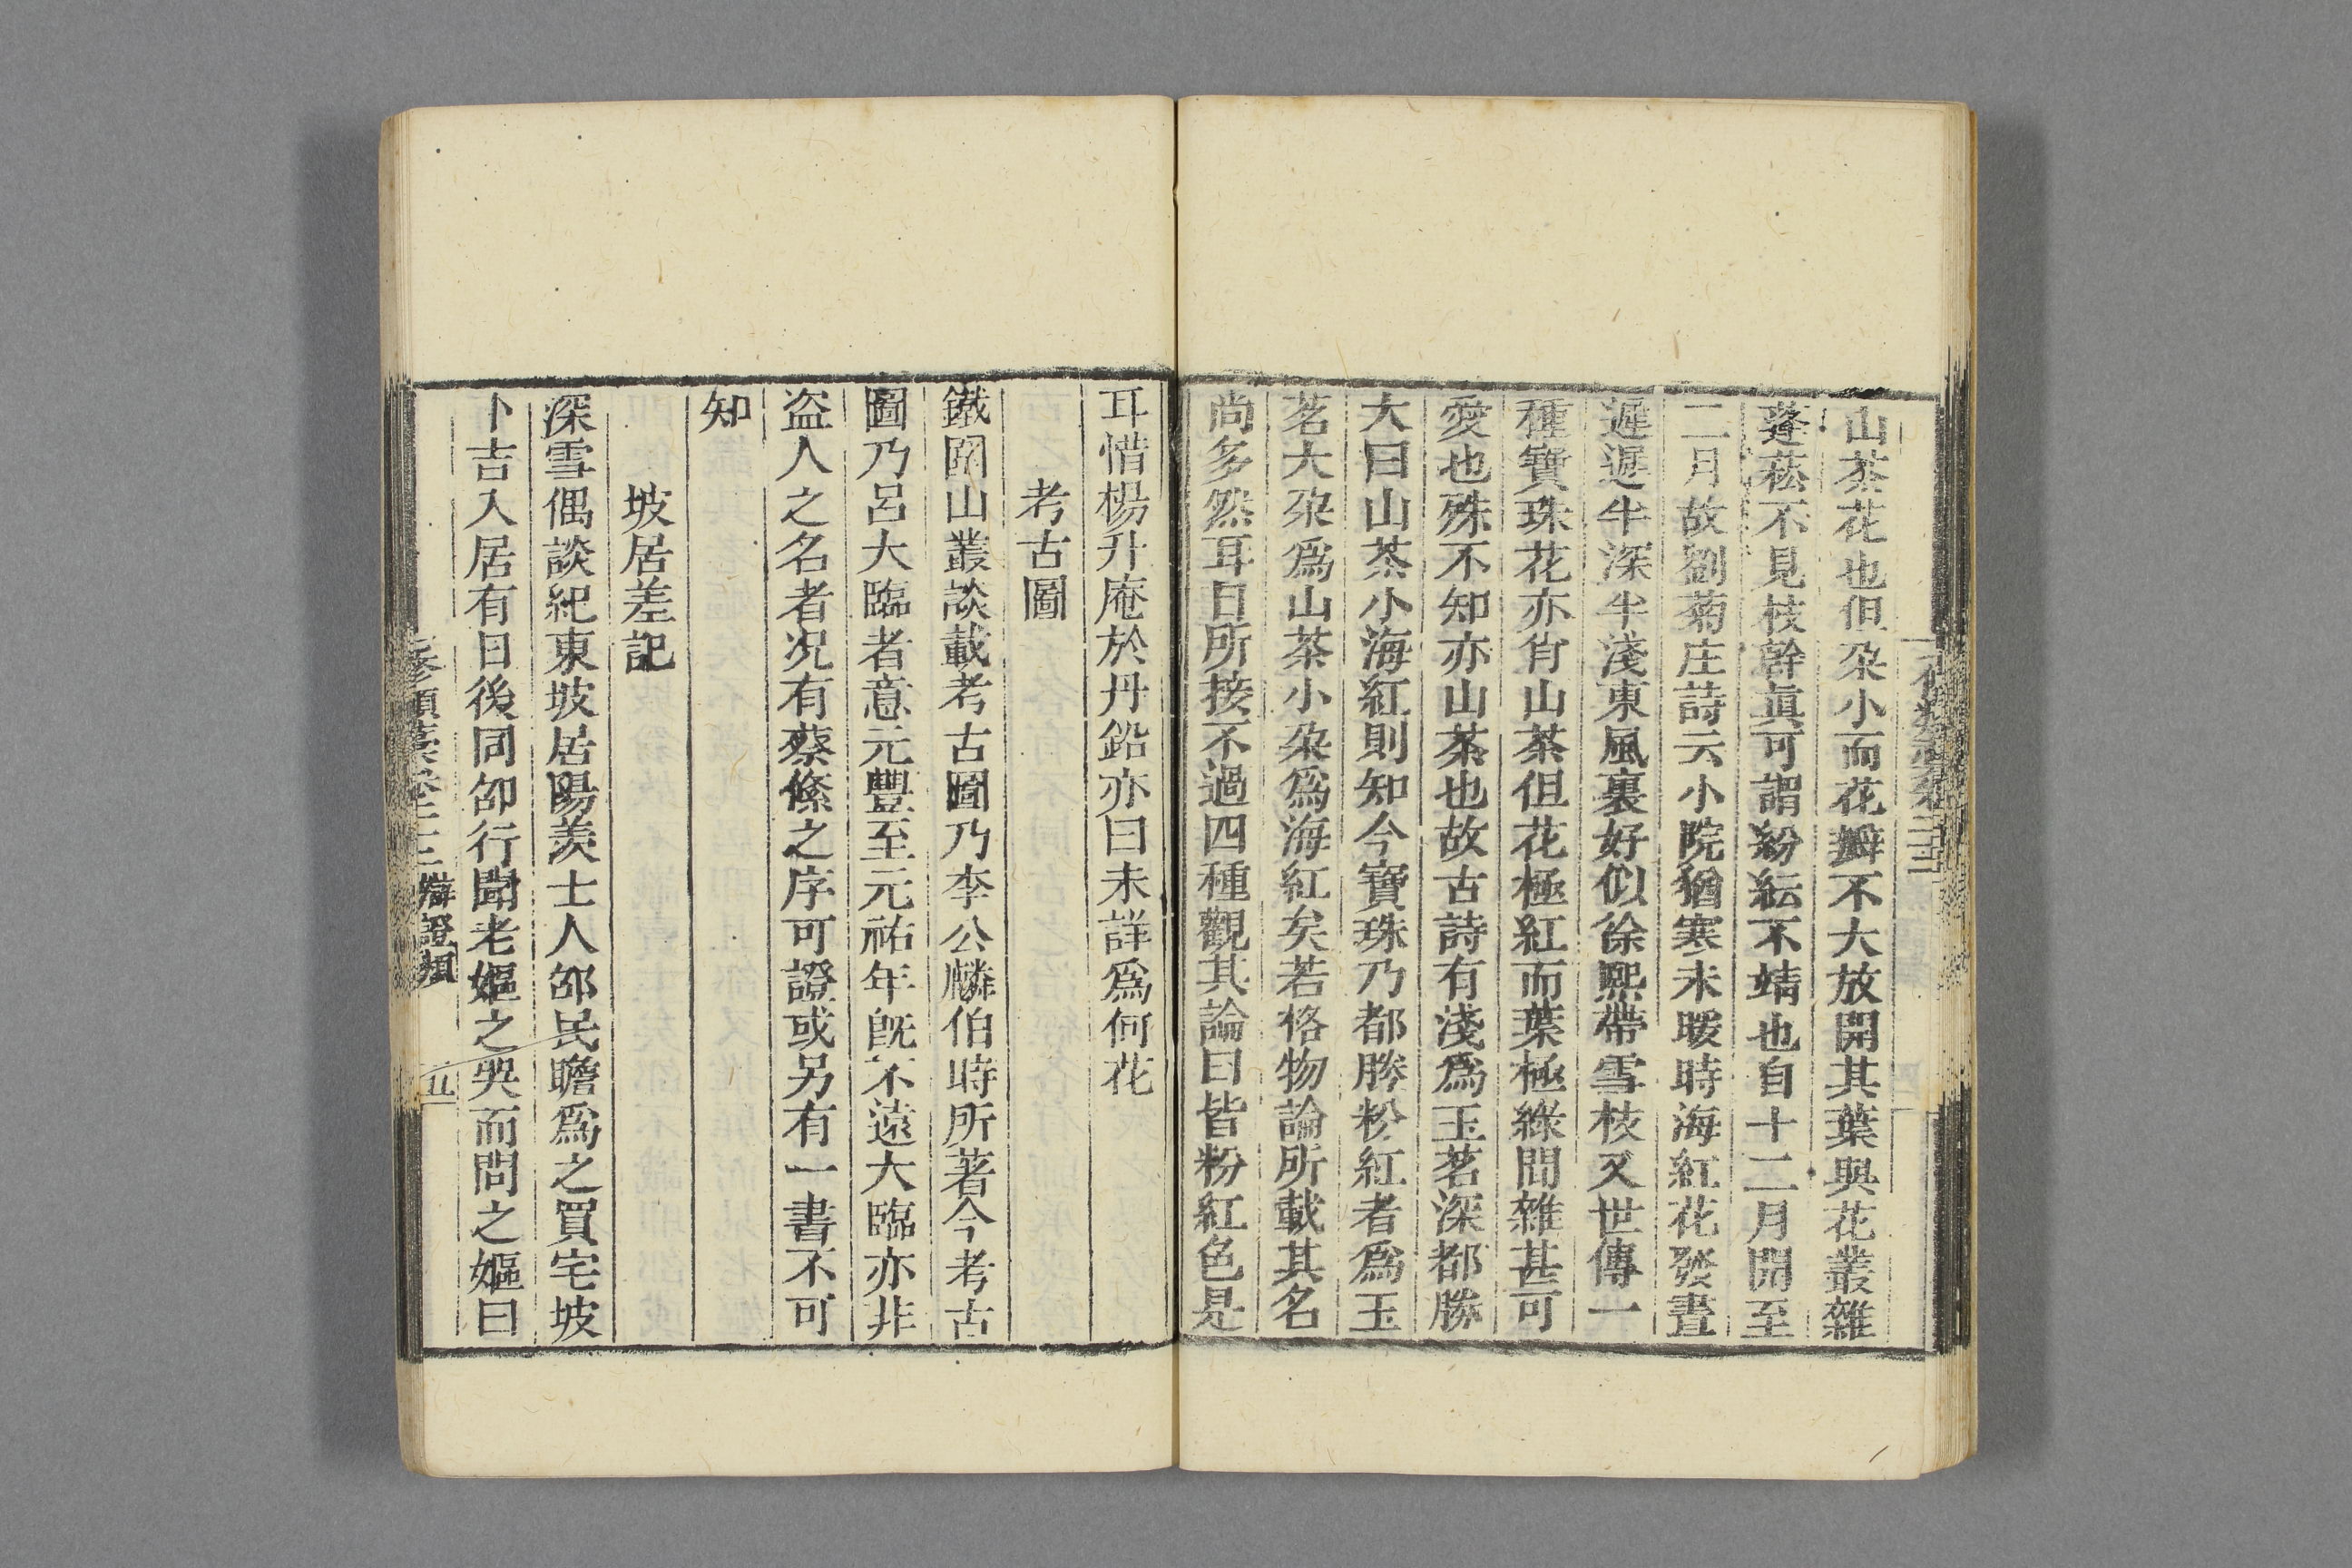 山茶花也但朶小而花瓣不大放開其葉與花叢雜
蓬菘不見枝幹眞可謂紛紜不靖也自十二月開至
二月故劉菊庄詩云小院猶寒未暖時海紅花發晝
遲遲半深半淺東風裏好似徐熙帶雪枝又世傳一
種寶珠花亦有山茶但花極紅而葉極綠間雜甚可
愛也殊不知亦山茶也故古詩有淺爲玉茗深都勝
大曰山茶小海紅則知今寶珠乃都勝粉紅者爲玉
茗大朶爲山茶小朶爲海紅矣若格物論所載其名
尚多然耳目所接不過四種觀其論曰皆粉紅色是
耳惜楊升庵於丹鉛亦曰未詳爲何花
考古圖
鐵圍山叢談載考古圖乃李公麟伯時所著今考古
圖乃呂大臨者意元豐至元祐年旣不遠大臨亦非
盜人之名者况有蔡絛之序可證或另有一書不可
知
坡居差記
深雪偶談紀東坡居陽羨士人邵民瞻爲之買宅坡
卜吉入居有日後同邵行聞老嫗之哭而問之嫗曰
辯證類
五